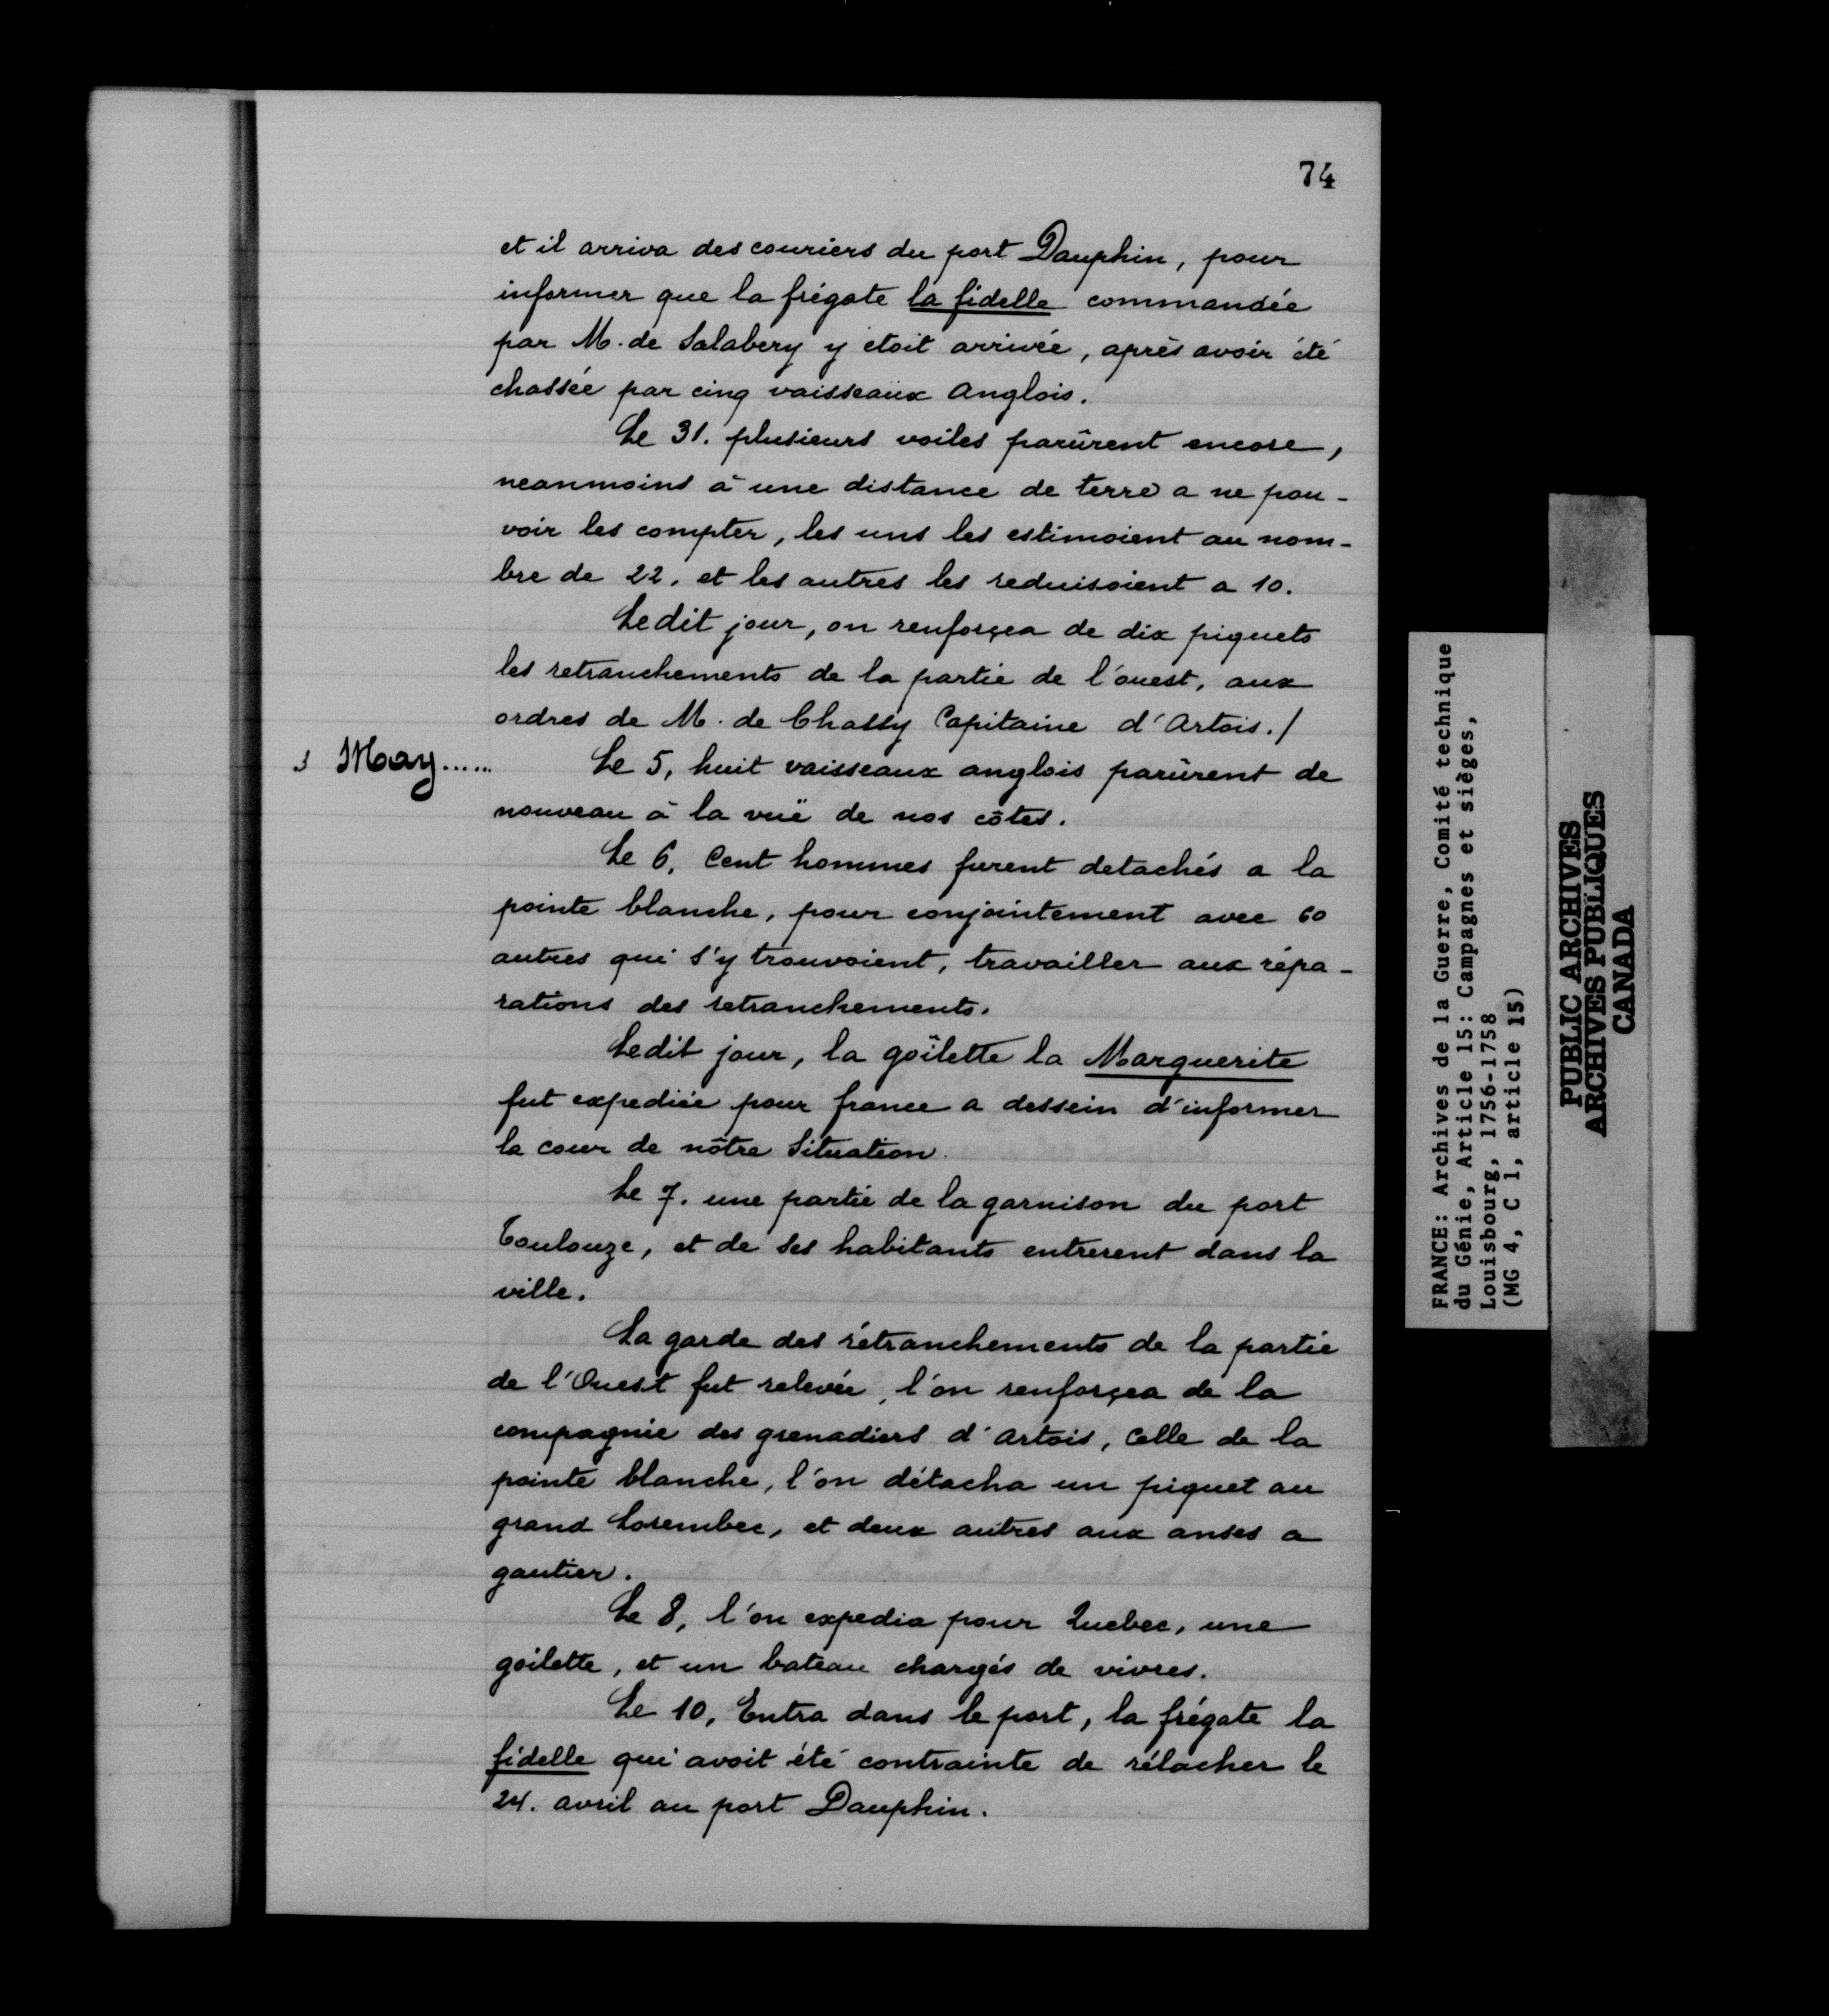 74
et il arriva des couriers du port Dauphin, pour
informer que la frégate la fidelle commandée
par M. de Salabery y étoit arrivée, après avoir été
chassée par cinq vaisseaux Anglois.
Le 31. plusieurs voiles parûrent encore,
neanmoins à une distance de terre a ne pou-
voir les compter, les uns les estimoient au nom-
bre de 22. et les autres les reduisoient a 10.
Ledit jour, on renforçea de dix piquets
les retranchements de la partie de l'ouest, aux
ordres de M. de Chassy Capitaine d'Artois./
May......
Le 5, huit vaisseaux anglois parûrent de
nouveau à la vuë de nos côtes.
Le 6, Cent hommes furent detachés a la
pointe blanche, pour conjointement avec 60
autres qui s'y trouvoient, travailler aux répa-
rations des retranchements.
Ledit jour, la goïlette la Marguerite
fut expediée pour france a dessein d'informer
la cour de nôtre Situation.
Le 7. une partie de la garnison du port
Toulouze, et de ses habitants entrerent dans la
ville.
La garde des rétranchements de la partie
de l'Ouest fut relevée, l'on renforçea de la
compagnie des grenadiers d'artois, celle de la
pointe blanche, l'on détacha un piquet au
grand Lorembec, et deux autres aux anses a
gautier.
Le 8, l'on expedia pour Quebec, une
goilette, et un bateau chargés de vivres.
Le 10, Entra dans le port, la frégate la
fidelle qui avoit été contrainte de rélacher le
24. avril au port Dauphin.
FRANCE: Archives de la Guerre, Comité technique
du Génie, Article 15: Campagnes et sièges,
Louisbourg, 1756-1758
(MG 4, C 1, article 15)
PUBLIC ARCHIVES
ARCHIVES PUBLIQUES
CANADA